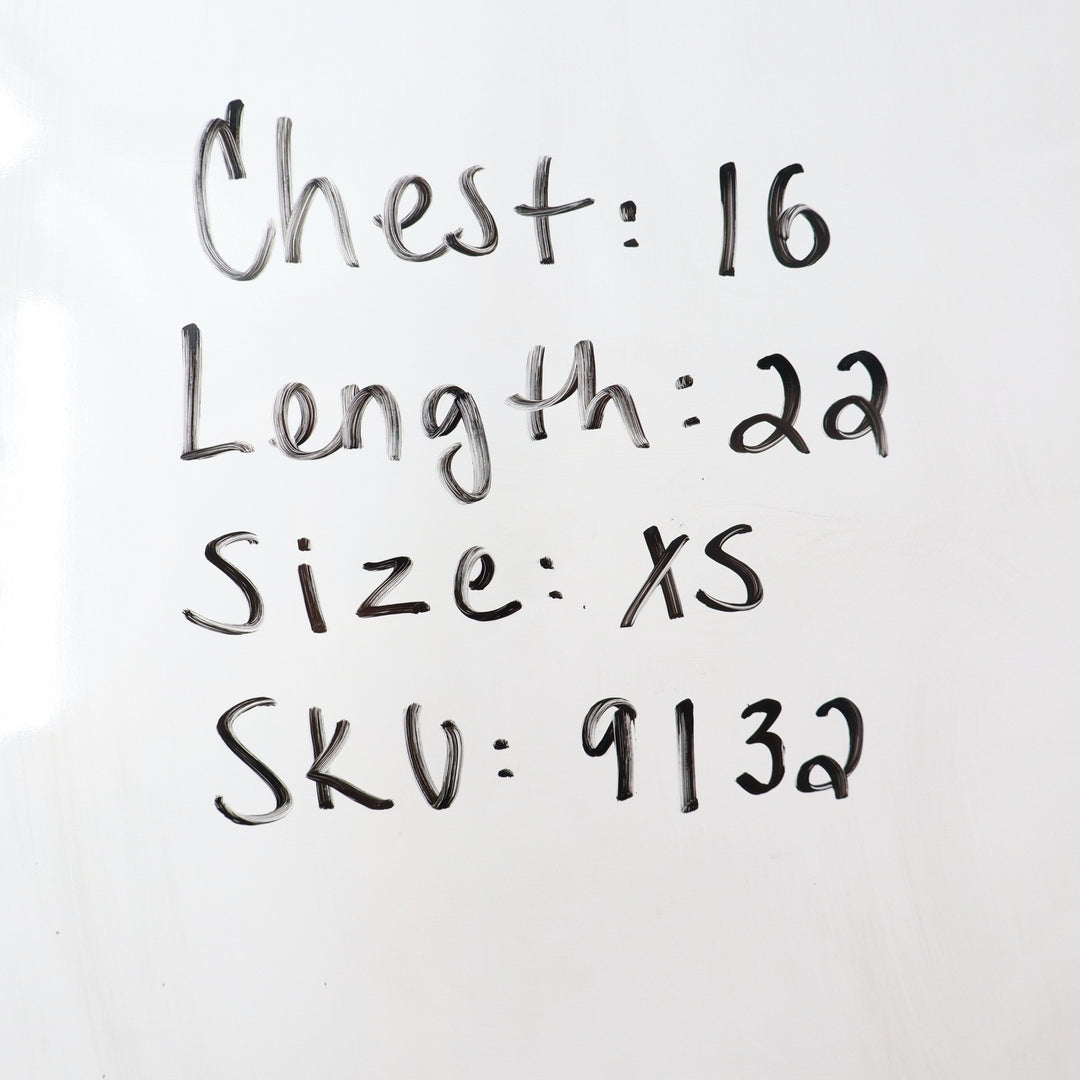 Chest: 16
Length: 22
Size: XS
SKU: 9132